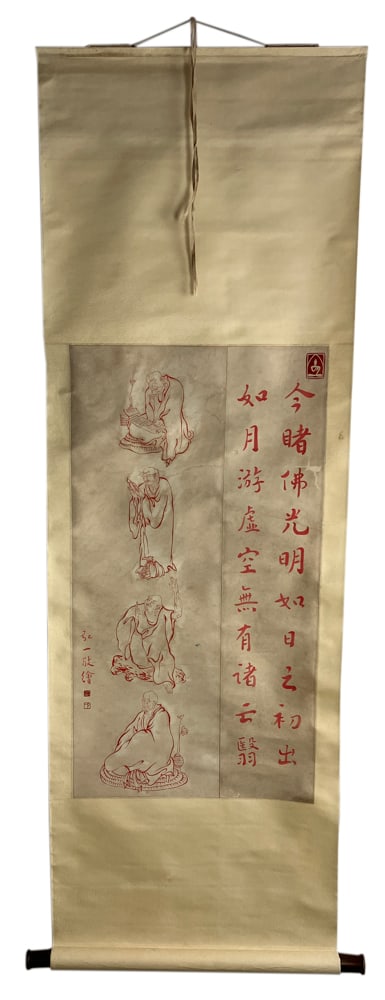 今睹佛光明如日之初出
如月游虛空無有诸云翳
弘一敬繪